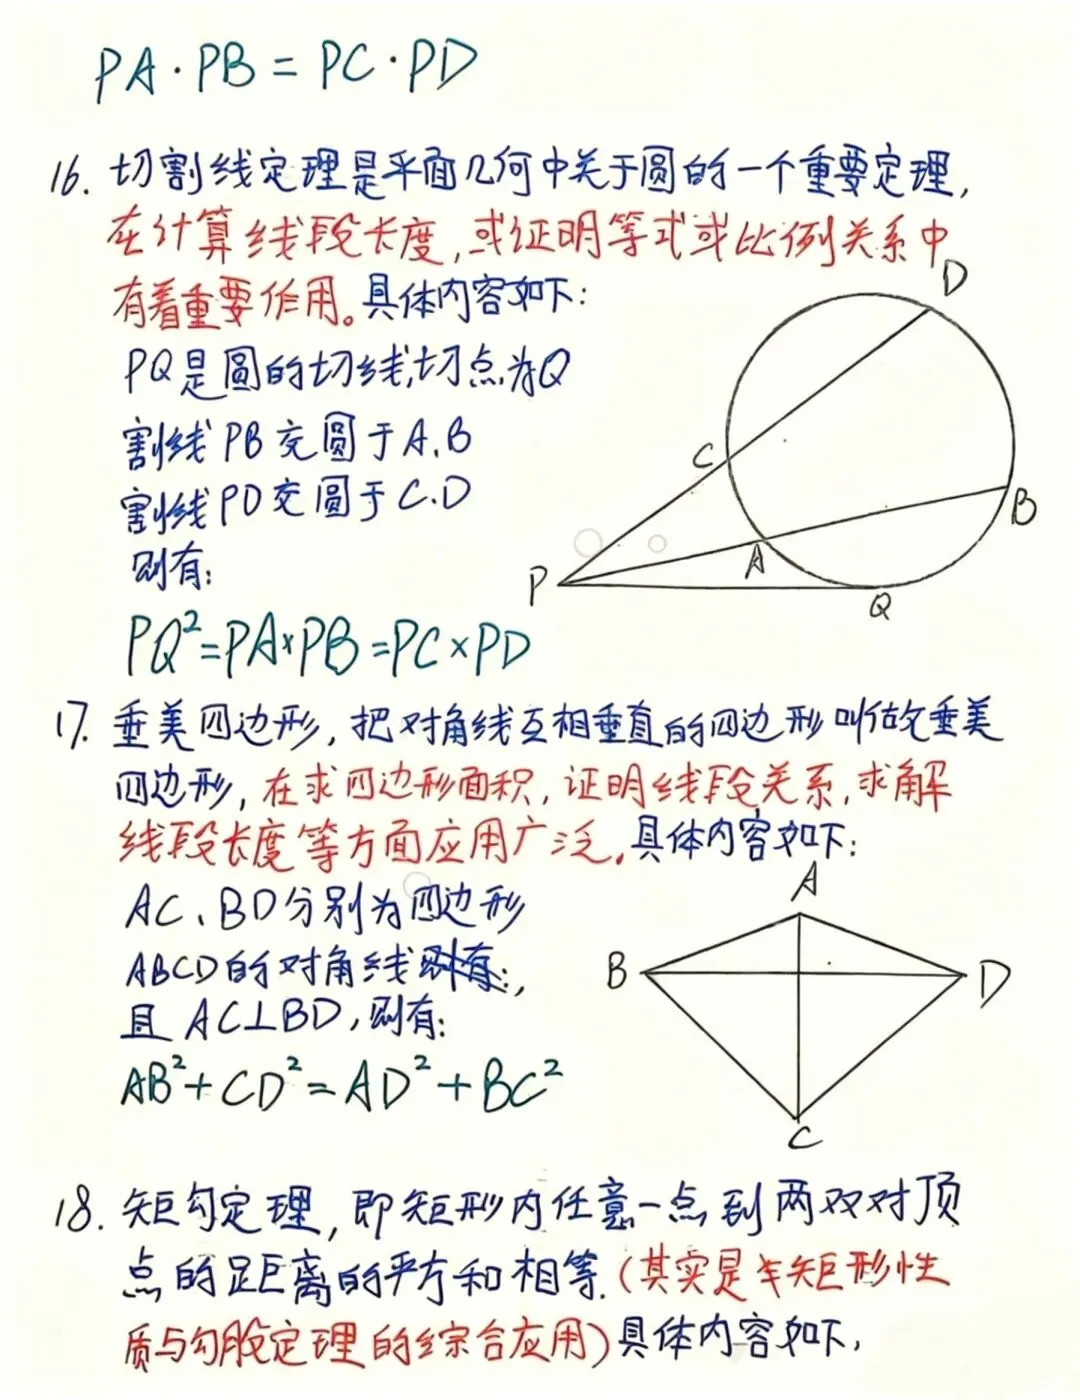 PA·PB=PC·PD
16. 切割线定理是平面几何中关于圆的一个重要定理,
在计算线段长度,或证明等式或比例关系中
有着重要作用。具体内容如下:
D
PQ是圆的切线,切点为Q
割线PB交圆于A.B
C
割线PD交圆于C.D
B
则有:
A
P
Q
PQ²=PA×PB=PC×PD
17. 垂美四边形,把对角线互相垂直的四边形叫做垂美
四边形,在求四边形面积,证明线段关系,求解
线段长度等方面应用广泛.具体内容如下:
A
AC、BD分别为四边形
ABCD的对角线,
B
D
且AC⊥BD,则有:
AB²+CD²=AD²+BC²
C
18. 矩勾定理,即矩形内任意一点到两双对顶
点的距离的平方和相等.(其实是矩形性
质与勾股定理的综合应用)具体内容如下,